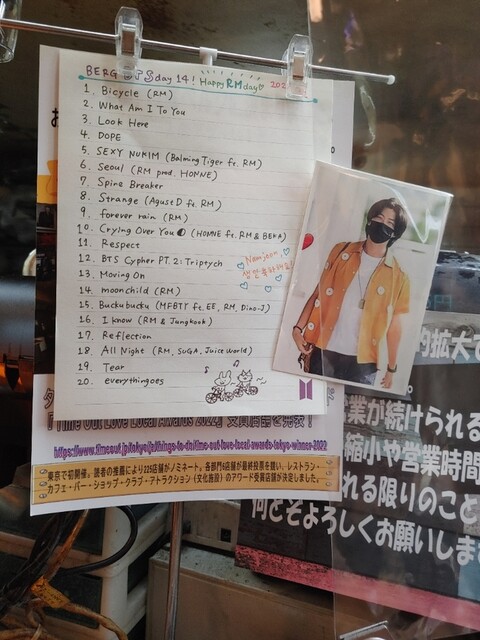 BERG BTS day 14! Happy RM day
1. Bicycle (RM)
2. What Am I To You
3. Look Here
4. DOPE
5. SEXY NUKIM (Balming Tiger ft. RM)
6. Seoul (RM prod. HONNE)
7. Spine Breaker
8. Strange (Agust D ft. RM)
9. forever rain (RM)
10. Crying Over You (HONNE ft. RM & BEKA)
11. Respect
12. BTS Cypher PT. 2: Triptych
13. Moving On
14. moonchild (RM)
15. Buckubucku (MFBTY ft. EE, RM, Dino-J)
16. I know (RM & Jungkook)
17. Reflection
18. All Night (RM, SUGA, Juice World)
19. Tear
20. everythingoes
Namjoon,
『Time Out Love Local Awards 2022』受賞店舗を発表!
東京で初開催。読者の推薦により225店舗がノミネート。各部門5店舗が最終投票を競い、レストラン・
カフェ・バー・ショップ・クラブ・アトラクション(文化施設)のアワード受賞店舗が決定しました。
的拡大で
業が続けられる
縮小や営業時間
れる限りのこと
何とぞよろしくお願いしま